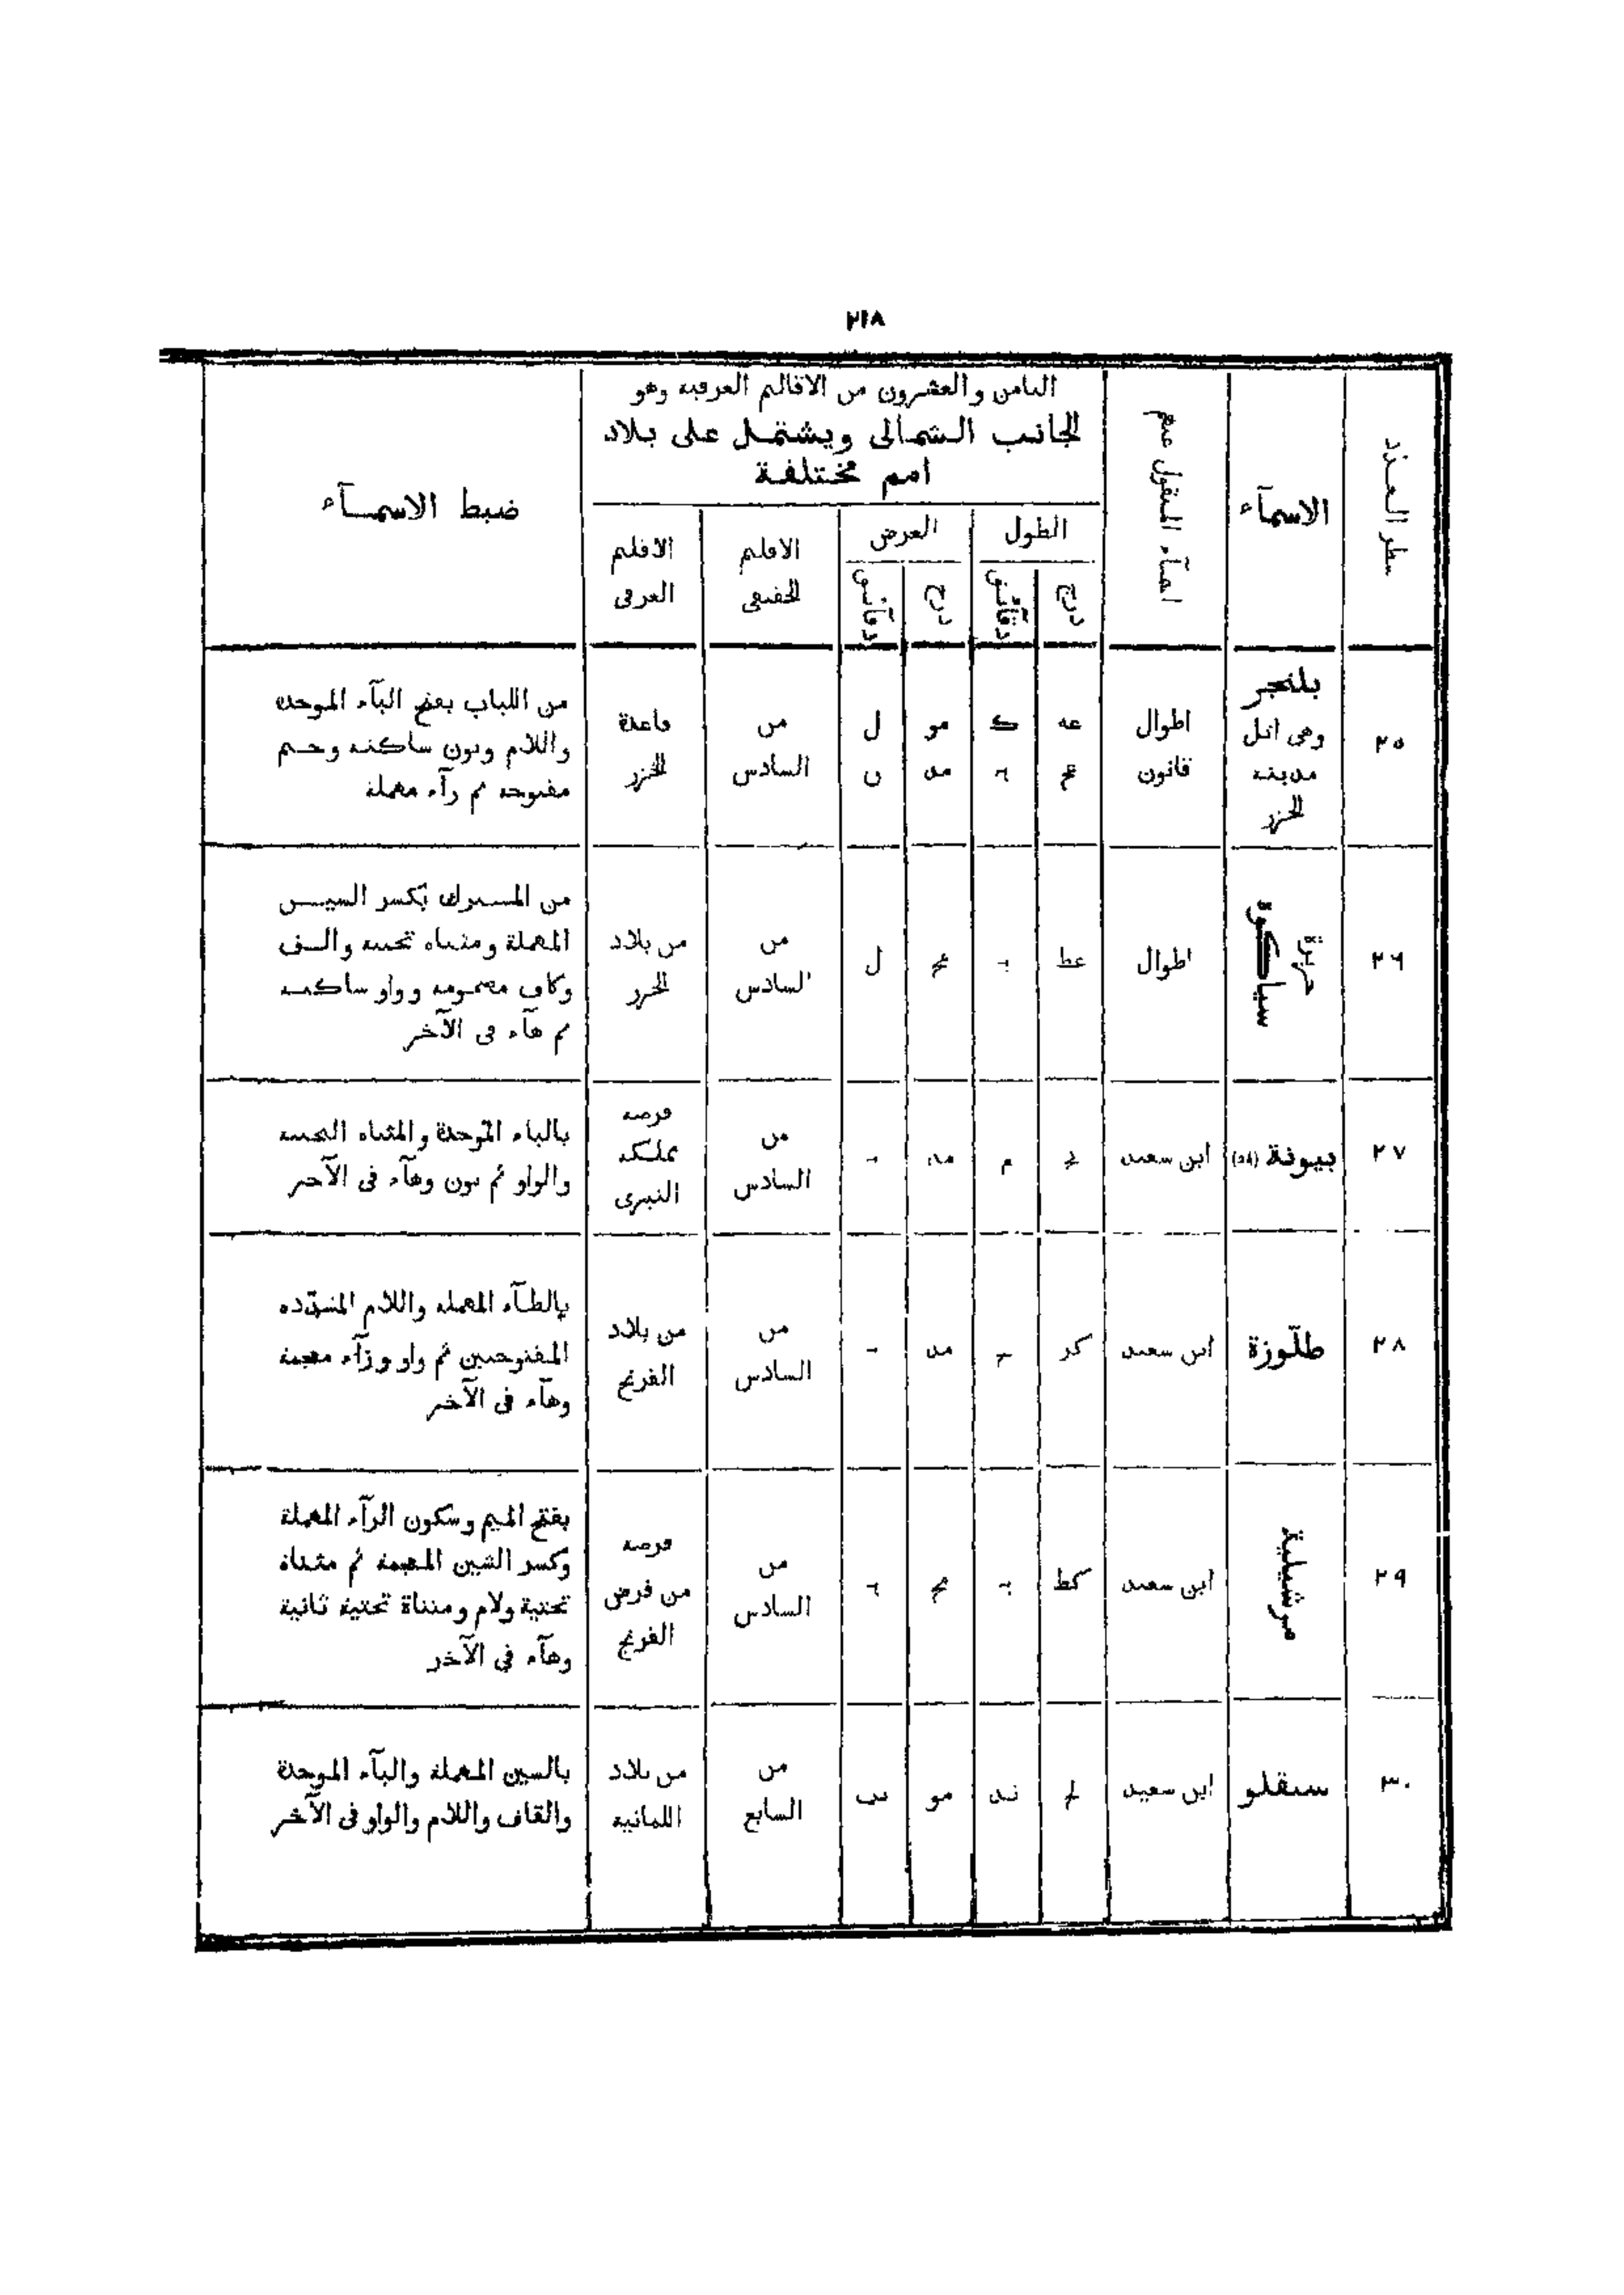 ٢١٨
سطر العدد
الاسمآء
اسمآء المنقول عنهم
الثامن والعشرون من الاقاليم العرفية وهو
الجانب الشمالى ويشتمل على بلاد
امم مختلفة
الطول
درج
دقآئق
العرض
درج
دقآئق
الاقليم
الحقيقى
الاقليم
العرفى
ضبط الاسمآء
٢٥
بلنجر
وهى اتل
مدينة
الخزر
اطوال
قانون
عه ك مو ل
مد ن
من
السادس
قاعدة
الخزر
من اللباب بفتح البآء الموحدة
واللام ونون ساكنة وجيم
مفتوحة ثم رآء مهملة
٢٦
جزيرة
سياكوة
اطوال
عط
ل
من
السادس
من بلاد
الخزر
من المشترك بكسر السيــن
المهملة ومثناة تحتية والــف
وكاف مضمومة وواو ساكنــة
ثم هآء فى الآخر
٢٧
بيونة
ابن سعيد
م مد
من
السادس
فرضة
مملكة
النبرى
بالباء الموحدة والمثناة التحتية
والواو ثم نون وهآء فى الآخر
٢٨
طلّوزة
ابن سعيد
كر مد
من
السادس
من بلاد
الفرنج
بالطآء المهملة واللام المشدّدة
المفتوحتين ثم واو وزآء معجمة
وهآء فى الآخر
٢٩
مرشيلية
ابن سعيد
كط
من
السادس
فرضة
من فرض
الفرنج
بفتح الميم وسكون الرآء المهملة
وكسر الشين المعجمة ثم مثناة
تحتية ولام ومثناة تحتية ثانية
وهآء فى الآخر
٣٠
سبقلو
ابن سعيد
ند مو
من
السابع
من بلاد
اللمانية
بالسين المهملة والبآء الموحدة
والقاف واللام والواو فى الآخر